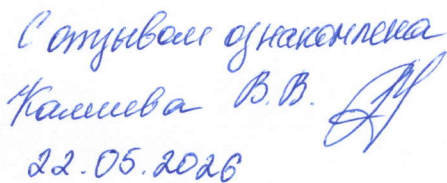 С отзывом ознакомлена
Калиева В.В.
22.05.2026